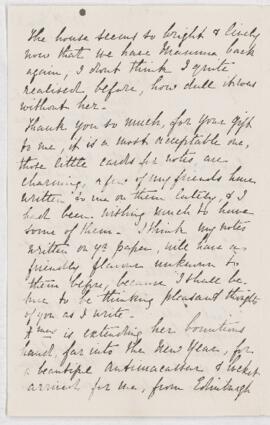 The house seems so bright & lively
now that we have Mamma back
again, I dont think I quite
realised before, how dull it was
without her.
Thank you so much, for your gift
to me, it is a most acceptable one,
those little cards for notes, are
charming, a few of my friends have
written to me on them lately, & I
had been wishing much to have
some of them. I think my notes
written on yr paper, will have a
friendly flavour unknown to
them before, because I shall be
sure to be thinking pleasant thoughts
of you as I write.
is extending her bounteous
hand, far into the New Year, for
a beautiful antimacassar & locket
arrived for me, from Edinburgh